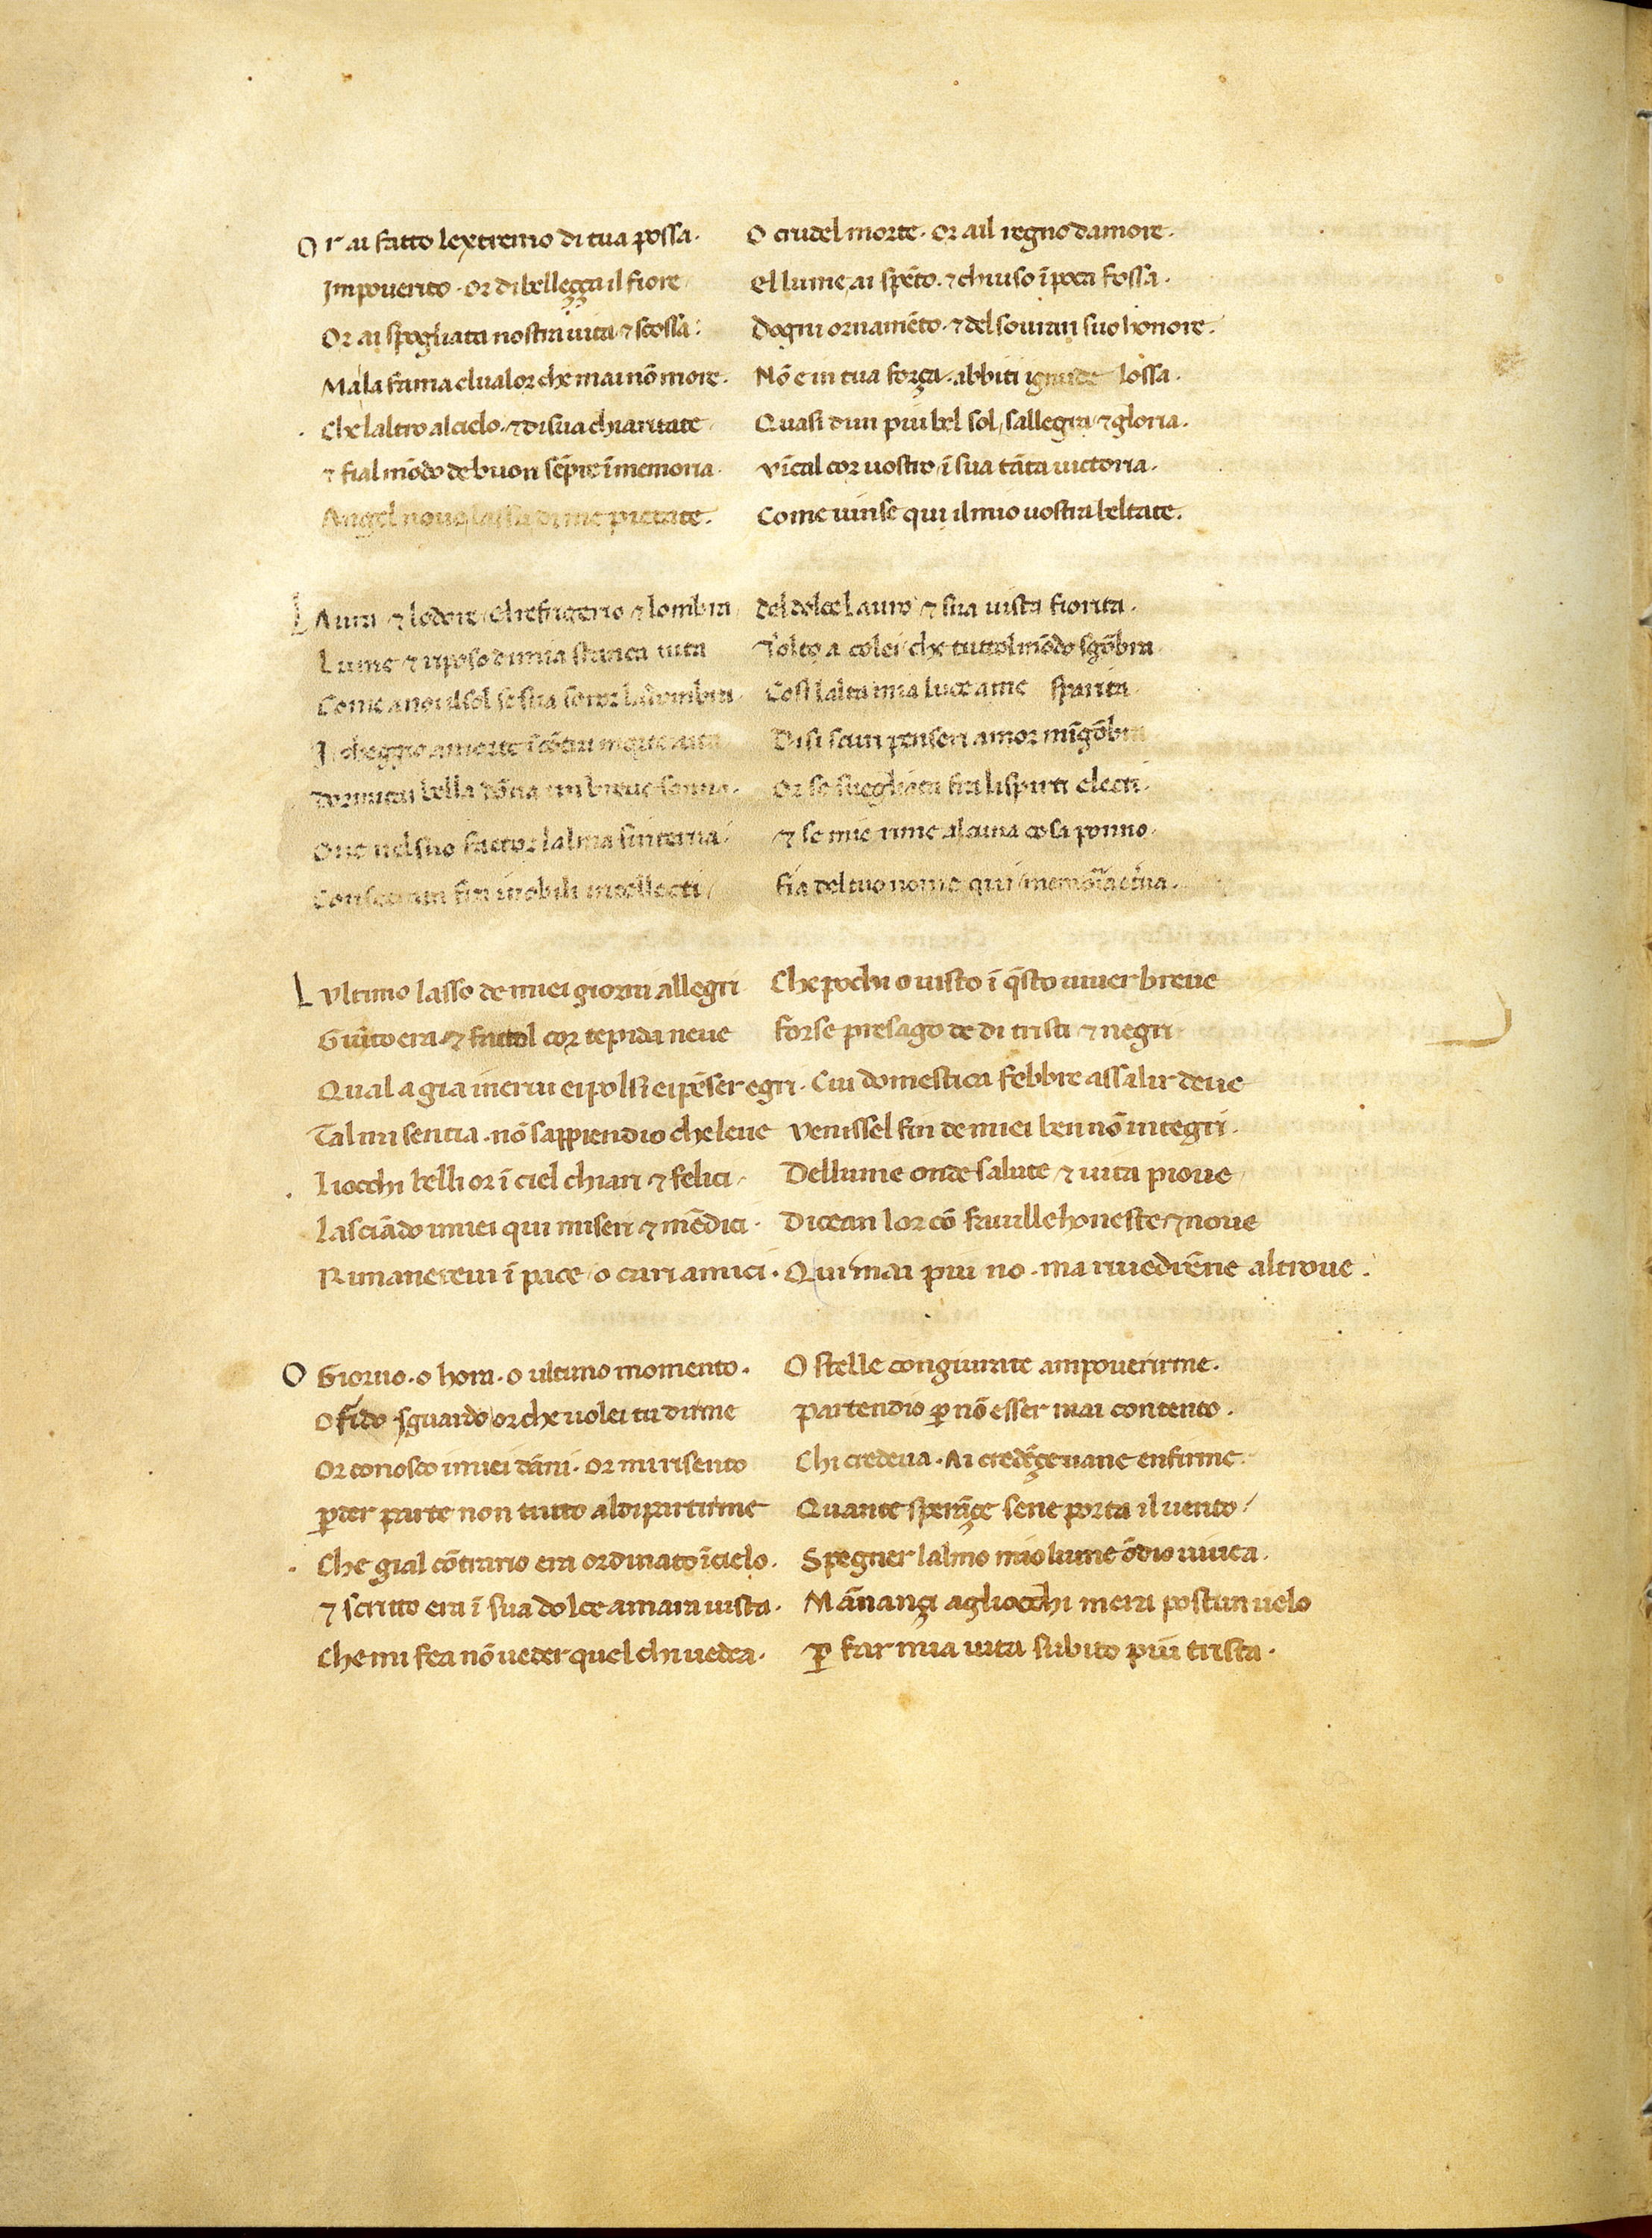 Or ai fatto lextremo di tua possa. O crudel morte. Or ail regno damore.
Impouerito. or di belleçça il fiore El lume, ai spēto. ⁊ chiuso ī poca fossa.
Or ai spogliata nostra uita ⁊ scossa: Dogni ornamēto. ⁊ del souran suo honore.
Ma la fama elualor che mai nō more. Nō e in tua força. abbiti ignude lossa.
Che laltro al cielo. ⁊ di sua chiaritate Quasi dun piu bel sol, sallegra ⁊ gloria.
⁊ fial mōdo de buon sēpre ī memoria. vīcal cor uostro, ī sua tāta uictoria.
Angel nouo lassu di me pietate. Come uinse qui il mio uostra beltate.
LAura ⁊ lodore, el refrigerio ⁊ lombra del dolce lauro ⁊ sua uista fiorita.
Lume ⁊ riposo di mia stanca uita Tolto a colei che tuttol mōdo sgōbra.
Come a noi il sol se sua soror ladombra Cosi lalta mia luce a me sparita.
I cheggio a morte ī cōtra morte aita Di si scuri penseri amor mīgōbra
dormitai bella dōna un breue sonno. Or se suegliata fra li spirti electi.
Oue nel suo factor lalma sinterna. ⁊ se mie rime alcuna cosa ponno.
Consecrata fra i nobili intellecti fia del tuo nome qui memoria etna.
Lvltimo lasso de miei giorni allegri Che pochi o uisto ī q̄sto uiuer breue
Giūto era ⁊ fattol cor tepida neue forse presago de di tristi ⁊ negri
Qual a gia i nerui ei polsi ei pēser egri. Cui domestica febbre assalir deue
Tal mi sentia. nō sappiendio che leue venissel fin de miei ben nō integri.
Liocchi belli or ī ciel chiari ⁊ felici Del lume onde salute ⁊ uita pioue
Lasciādo i miei qui miseri ⁊ mēdici. Dicean lor cō fauille honeste ⁊ noue
Rimaneteui ī pace o cari amici. Qui mai piu no. ma riuedrēne altroue.
O Giorno. o hora. o ultimo momento. O stelle congiurate ampouerirme.
O fido sguardo or che uolei tu dirme partendio ꝑ nō esser mai contento.
Or conosco i miei dāni. or mi risento Chi credeua. Ai credēçe uane enfirme.
ꝑder parte non tutto al dipartirme Quante sperāçe sene porta il uento.
Che gial cōtrario era ordinato ī cielo. Spegner lalmo mio lume ōdio uiuea.
⁊ scritto era ī sua dolce amara uista. Mānançi agliocchi mera postun uelo
Che mi fea nō ueder quel chi uedea. ꝑ far mia uita subito piu trista.